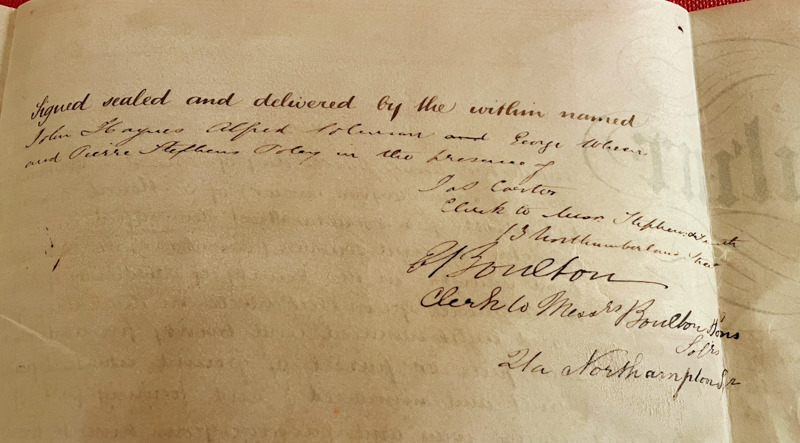 Signed sealed and delivered by the within named
John Haynes Alfred and George
and Pierre Stephens in the presence of
Jas Carter
Clerk to Messrs Stephens &
13 Northumberland Street
Boulton
Clerk to Messrs Boulton & Sons
Solrs
21a Northampton Sq